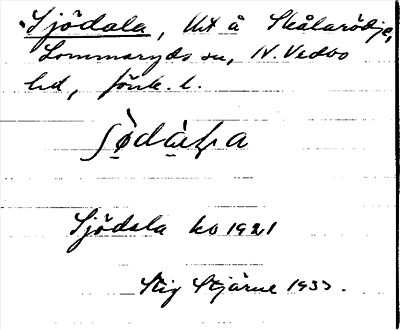 Sjödala, Utt å Skålarödje,
Lommaryds sn, N. Vedbo
hd, Jönk. l.
Sjödala ko 1921
Stig Stjärne 1933.